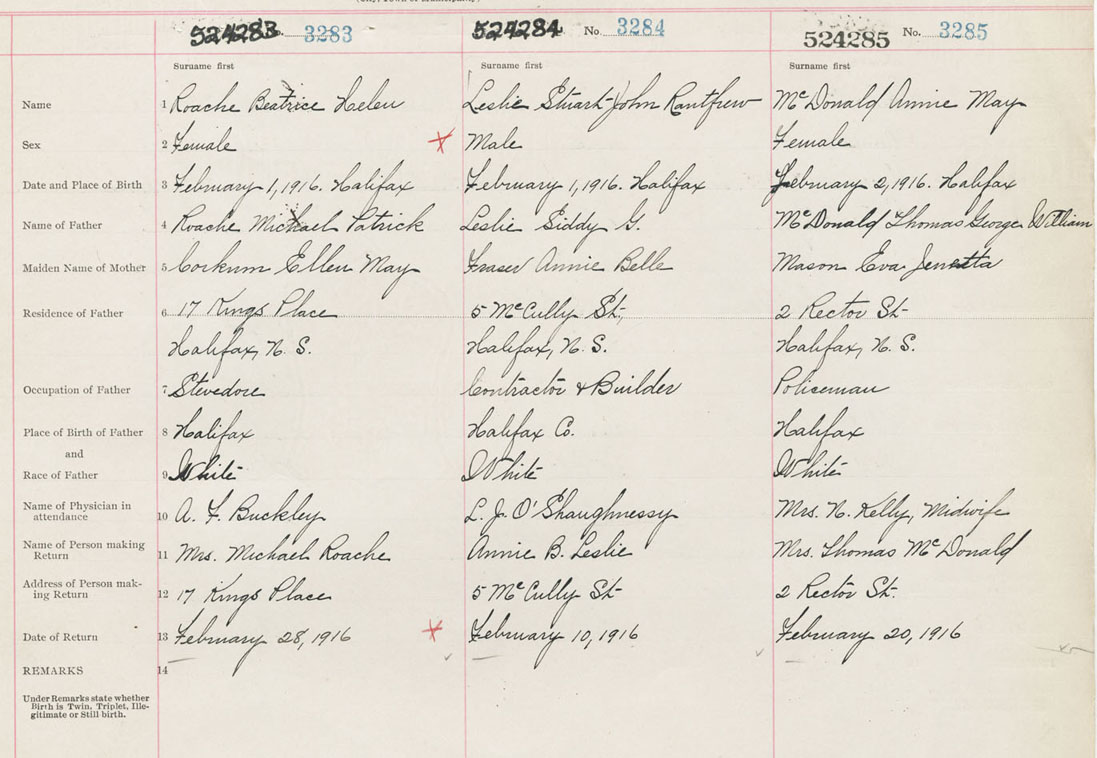 524283 3283 524284 No. 3284 524285 No. 3285
Surname first Surname first Surname first
Name 1 Roache Beatrice Helen Leslie Stuart John Rantfrew McDonald Annie May
Sex 2 Female Male Female
Date and Place of Birth 3 February 1, 1916. Halifax February 1, 1916. Halifax February 2, 1916. Halifax
Name of Father 4 Roache Michael Patrick Leslie Siddy G. McDonald Thomas George William
Maiden Name of Mother 5 Corkum Ellen May Fraser Annie Belle Mason Eva Jenetta
Residence of Father 6 17 Kings Place 5 McCully St. 2 Rector St.
Halifax, N. S. Halifax, N. S. Halifax, N. S.
Occupation of Father 7 Stevedore Contractor & Builder Policeman
Place of Birth of Father 8 Halifax Halifax Co. Halifax
and
Race of Father 9 White White White
Name of Physician in
attendance 10 A. F. Buckley L. J. O'Shaughnessy Mrs. N. Kelly, Midwife
Name of Person making
Return 11 Mrs. Michael Roache Annie B. Leslie Mrs. Thomas McDonald
Address of Person mak-
ing Return 12 17 Kings Place 5 McCully St. 2 Rector St.
Date of Return 13 February 28, 1916 February 10, 1916 February 20, 1916
REMARKS 14
Under Remarks state whether
Birth is Twin, Triplet, Ille-
gitimate or Still birth.